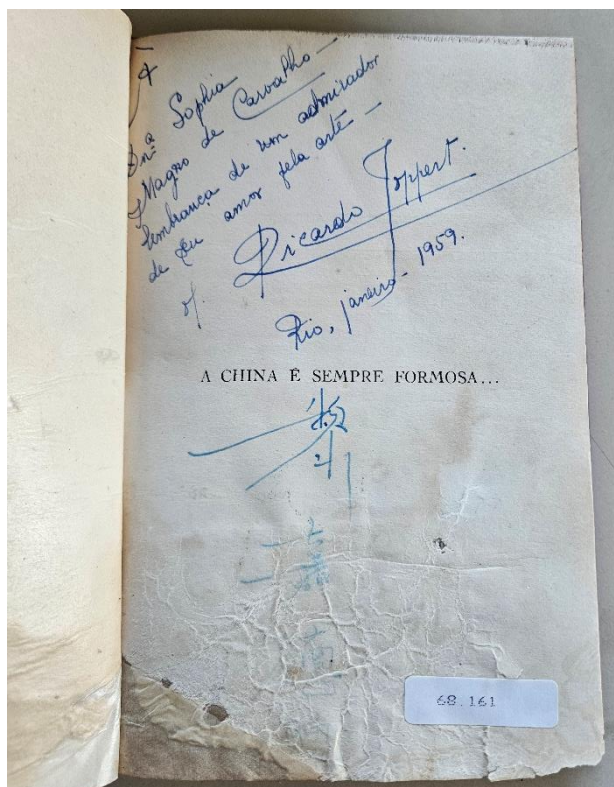 À
Dnª Sophia
Magno de Carvalho —
lembrança de um admirador
de seu amor pela arte —
of. Ricardo Joppert.
Rio, janeiro - 1959.
A CHINA É SEMPRE FORMOSA...
68.161